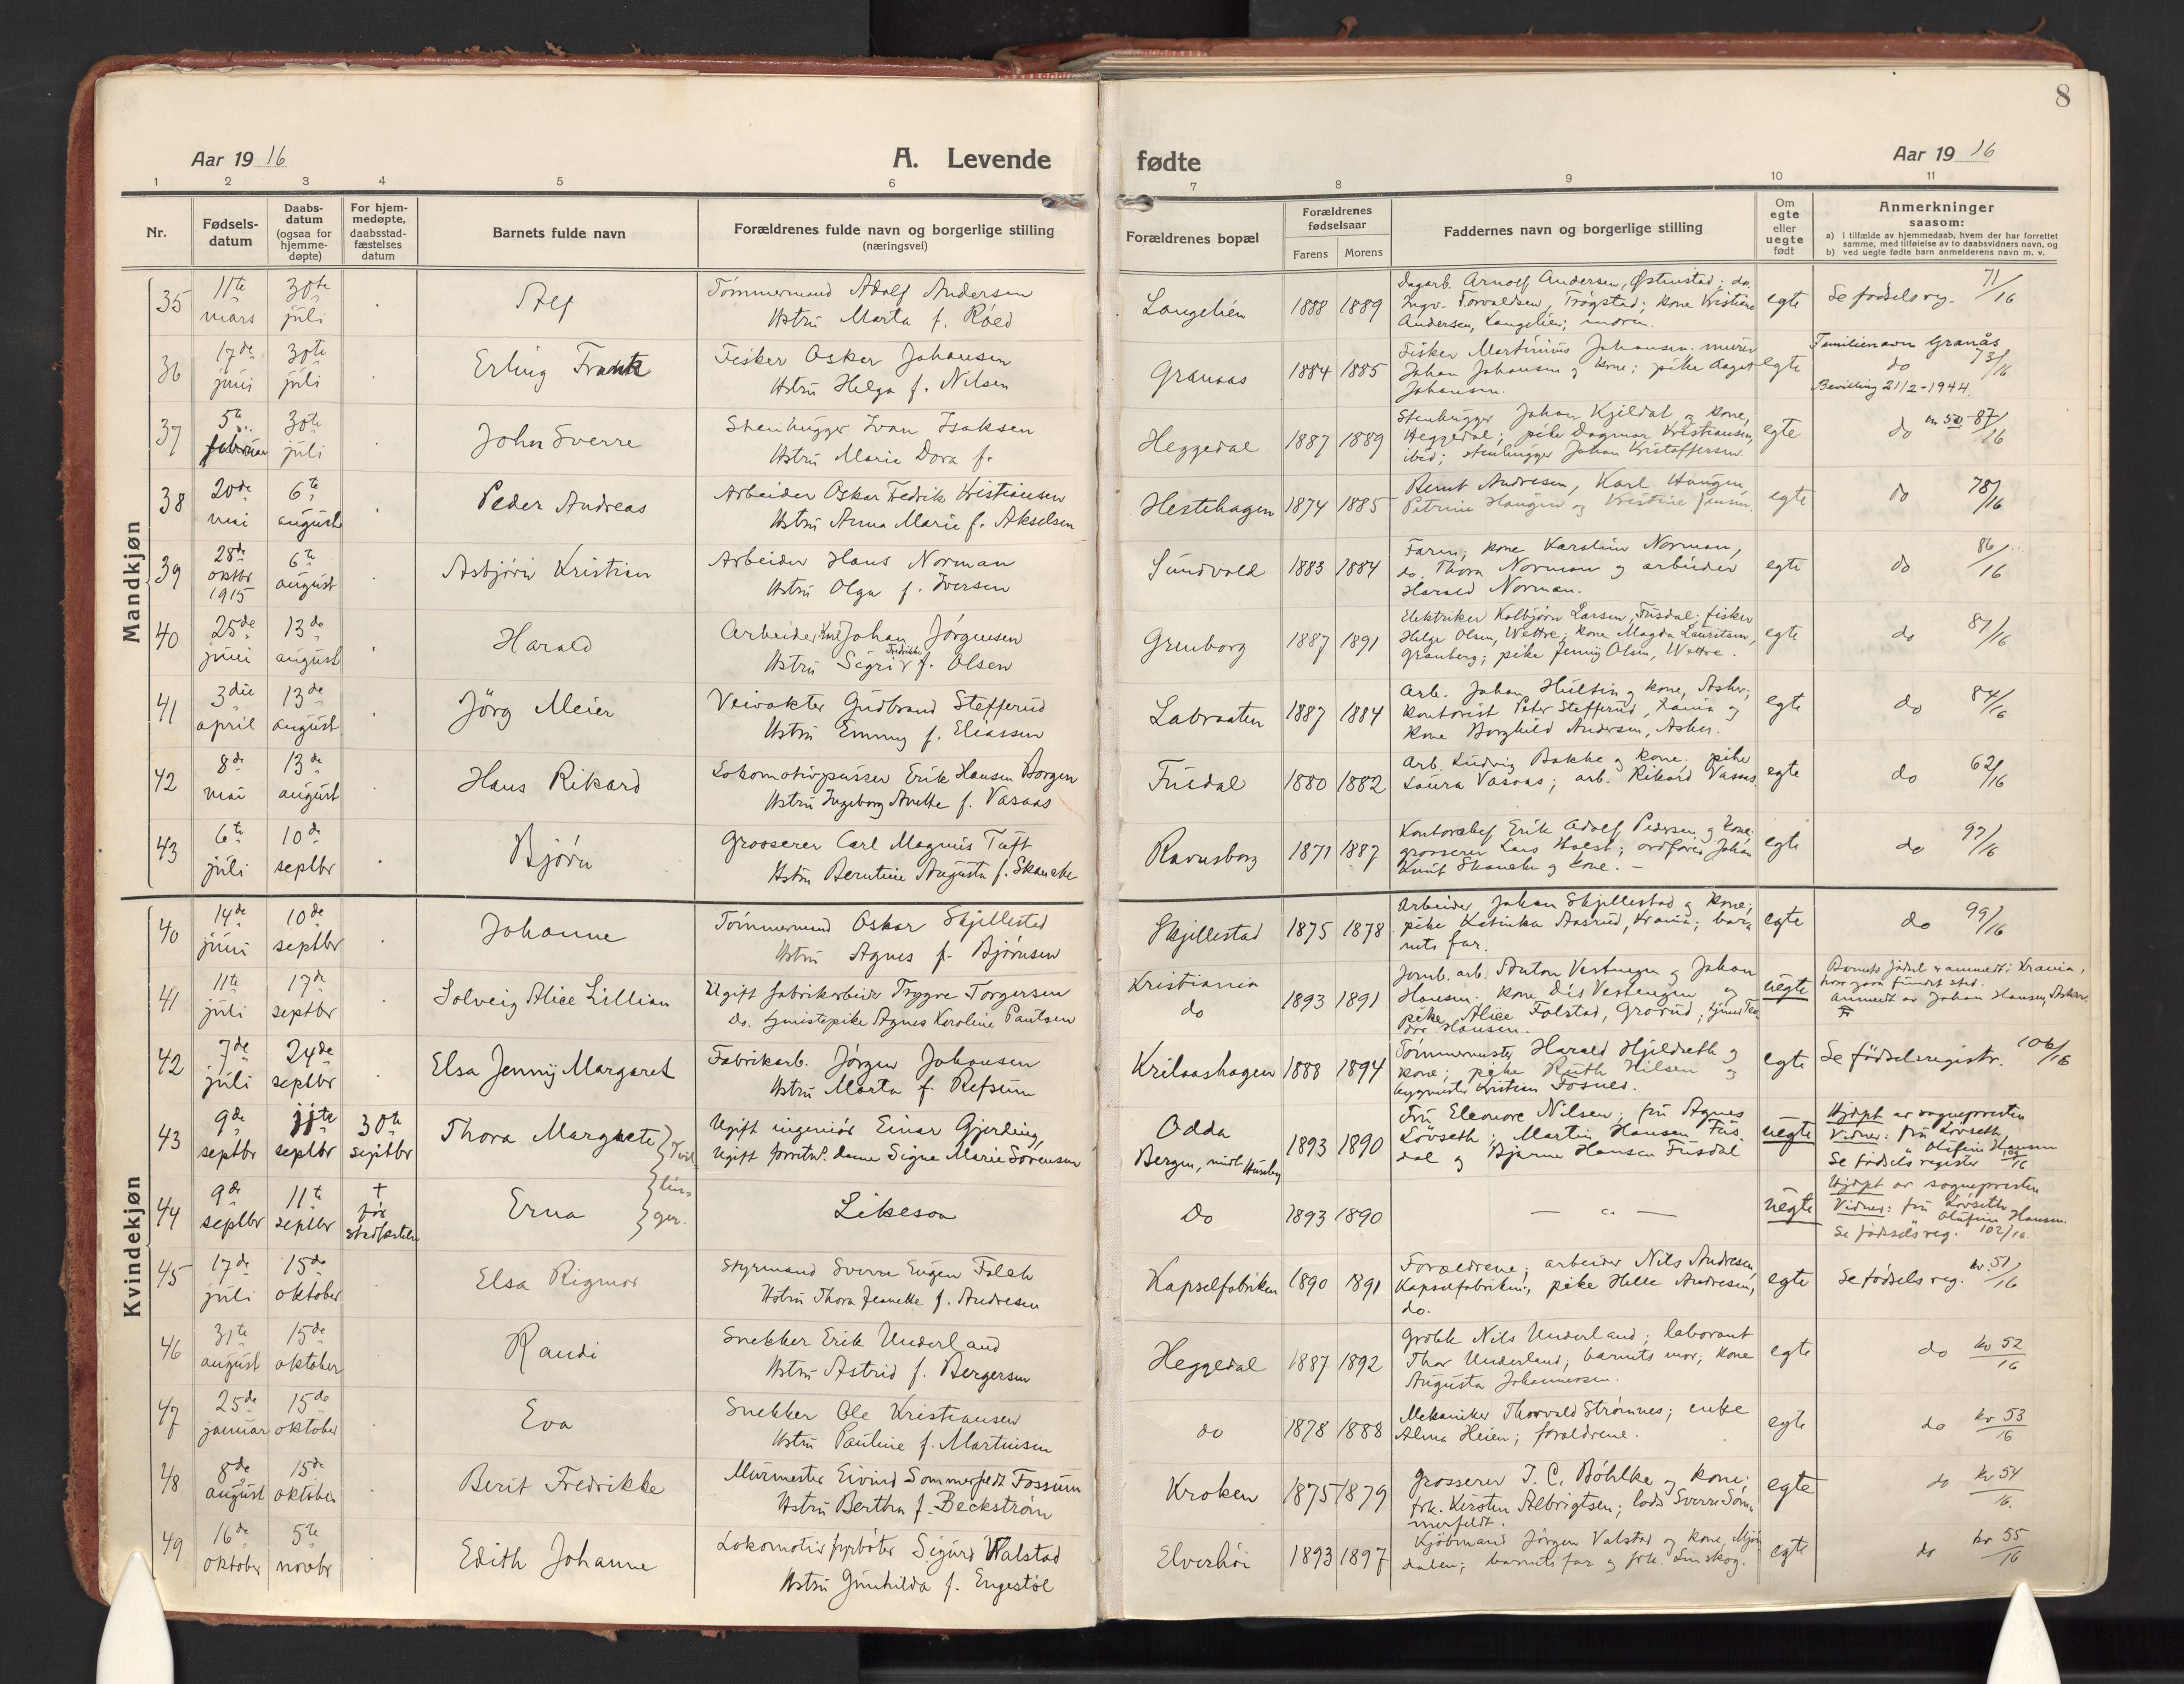 8
Aar 19 16
A. Levende
fødte
Aar 19 16
1 2 3 4 5 6 7 8 9 10 11
Nr.
Fødsels-
datum
Daabs-
datum
(ogsaa for
hjemme-
døpte)
For hjem-
medøpte,
daabsstad-
fæstelses
datum
Barnets fulde navn
Forældrenes fulde navn og borgerlige stilling
(næringsvei)
Forældrenes bopæl
Forældrenes
fødselsaar
Farens Morens
Faddernes navn og borgerlige stilling
Om
egte
eller
uegte
født
Anmerkninger
saasom:
a) i tilfælde av hjemmedaab, hvem der har forrettet
samme, med tilføielse av to daabsvidners navn, og
b) ved uegte fødte barn anmelderens navn m. v.
Mandkjøn
35 11te mars 30te juli Alf
Tømmermand Adolf Andersen
Hstru Marta f. Röed
Langelien 1888 1889
Dagarb. Arnolf Andersen, Østenstad; do.
Ingv. Torvaldsen, Trögstad; kone Kristiane
Andersen, Langelien; moren.
egte Se fødselsreg. 71/16
36 17de juni 30te juli Erling Frank
Fisker Oskar Johansen
Hstru Helga f. Nilsen
Granaas 1884 1885
Fisker Martinius Johansen. murer
Johan Johansen og kone; pike Aagot
Johansen.
egte
Familienavn Granås
do 73/16
Bevilling 21/2-1944.
37 5te februar 30te juli John Sverre
Stenhugger Ivan Isaksen
Hstru Marie Dora f.
Heggedal 1887 1889
Stenhugger Johan Kjeldal og kone,
Heggedal; pike Dagmar Kristiansen,
ibid; stenhugger Johan Kristoffersen.
egte do 87/16
38 20de mai 6te august Peder Andreas
Arbeider Oskar Fredrik Kristiansen
Hstru Anna Marie f. Akselsen
Hestehagen 1874 1885
Bernt Andresen, Karl Haugen,
Petrine Haugen og Kristine Jensen.
egte do 78/16
39 28de oktbr 1915 6te august Asbjørn Kristian
Arbeider Hans Norman
Hstru Olga f. Iversen
Sundvold 1883 1884
Faren; kone Karoline Norman,
do. Thora Norman og arbeider
Harald Norman.
egte do 86/16
40 25de juni 13de august Harald
Arbeider Karl Johan Jörgensen
Hstru Sigrid Fredrikke f. Olsen
Grenborg 1887 1891
Elektriker Kolbjørn Larsen, Fusdal; fisker
Helge Olsen, Wettre; kone Magda Lauritsen,
Granberg; pike Jenny Olsen, Wettre.
egte do 81/16
41 3die april 13de august Jörg Meier
Veivokter Gudbrand Stefferud
Hstru Emmy f. Eliassen
Labraaten 1887 1884
Arb. Johan Hultin og kone, Asker;
kontorist Peter Stefferud, Kania og
kone Borghild Andersen, Asker.
egte do 84/16
42 8de mai 13de august Hans Rikard
Lokomotivpusser Erik Hansen Borgen
Hstru Ingeborg Anette f. Vasaas
Fusdal 1880 1882
Arb. Ludvig Bakke og kone. pike
Laura Vasaas; arb. Rikard Vasaas.
egte do 62/16
43 6te juli 10de septbr Bjørn
Grosserer Carl Magnus Tuft
Hstru Berntine Augusta f. Skancke
Ravnsborg 1871 1887
Kontorchef Erik Adolf Pedersen og kone.
grosserer Lars Holst; ordfører Johan
Knut Skancke og kone. -
egte do 97/16
Kvindekjøn
40 14de juni 10de septbr Johanne
Tömmermand Oskar Skjellestad
Hstru Agnes f. Bjørnsen
Skjellestad 1875 1878
Arbeider Johan Skjellestad og kone;
pike Katinka Aasrud, Krania; bar-
nets far.
egte do 99/16
41 11te juli 17de septbr Solveig Alice Lillian
Ugift fabrikarbeider Trygve Torgersen
Do. tjenestepike Agnes Karoline Paulsen
Kristiania
do 1893 1891
Jernb. arb. Anton Vestengen og Johan
Hansen. kone Dis Vestengen og
pike Alice Folstad, Grorud;
Hansen.
uegte
Barnets fødsel er anmeldt i Krania,
hvor den fundet sted.
anmeldt av Johan Hansen, Asker.
42 7de juli 24de septbr Elsa Jenny Margaret
Fabrikarb. Jörgen Johansen
Hstru Marta f. Refsum
Krilaashagen 1888 1894
Tømmermester Harald Hjeldseth og
kone; pike Ruth Nilsen og
bygmester Kristian Fosnes.
egte Se födselsregistr. 106/16
43 9de septbr 11te septbr 30te septbr Thora Margrete } Tvil-
Ugift ingeniør Einar Gjerding,
Ugift forretn. dame Signe Marie Sørensen
Odda
Bergen, midl. Huseby 1893 1890
Fru Eleonore Nilsen; fru Agnes
Lövseth; Martin Hansen Fus-
dal og Bjarne Hansen Fusdal
uegte
Hjdøpt av sognepresten
Vidner: fru Lövseth
" Olufine Hansen
Se fødselsregister 103/16
44 9de septbr 11te septbr + før stadfæstelse Erna } lin- } ger.
Likesaa
Do 1893 1890
— " —
uegte
Hjdøpt av sognepresten
Vidner: fru Lövseth
" Olufine Hansen.
Se fødselsreg. 102/16
45 17de juli 15de oktober Elsa Rigmor
Styrmand Sverre Eugen Falck
Hstru Thora Jeanette f. Andresen
Kapselfabriken 1890 1891
Forældrene; arbeider Nils Andresen,
Kapselfabriken, pike Helle Andresen,
do.
egte Se fødselsreg. kv. 51/16
46 31te august 15de oktober Randi
Snekker Erik Underland
Hstru Astrid f. Bergersen
Heggedal 1887 1892
Grobk Nils Underland; laborant
Thor Underland; barnets mor; kone
Augusta Johannessen.
egte do kv 52/16
47 25de januar 15de oktober Eva
Snekker Ole Kristiansen
Hstru Pauline f. Martinsen
do 1878 1888
Mekaniker Thorvald Strømnes; enke
Alma Heien; forældrene.
egte do kv 53/16
48 8de august 15de oktober Berit Fredrikke
Murmester Eivind Sommerfeldt Fossum
Hstru Bertha f. Beckstrøm
Kroken 1875 1879
Grosserer T. C. Bøhlke og kone;
frk. Kirsten Albrigtsen; lods Sverre Som-
merfeldt.
egte do kv 54/16.
49 16de oktober 5te novbr Edith Johanne
Lokomotivfyrbøter Sigurd Walstad
Hstru Gunhilda f. Engestøl
Elverhøi 1893 1897
Kjøbmand Jørgen Valstad og kone, Mjøn-
dalen; barnets far og frk. Linskog.
egte do kv 55/16